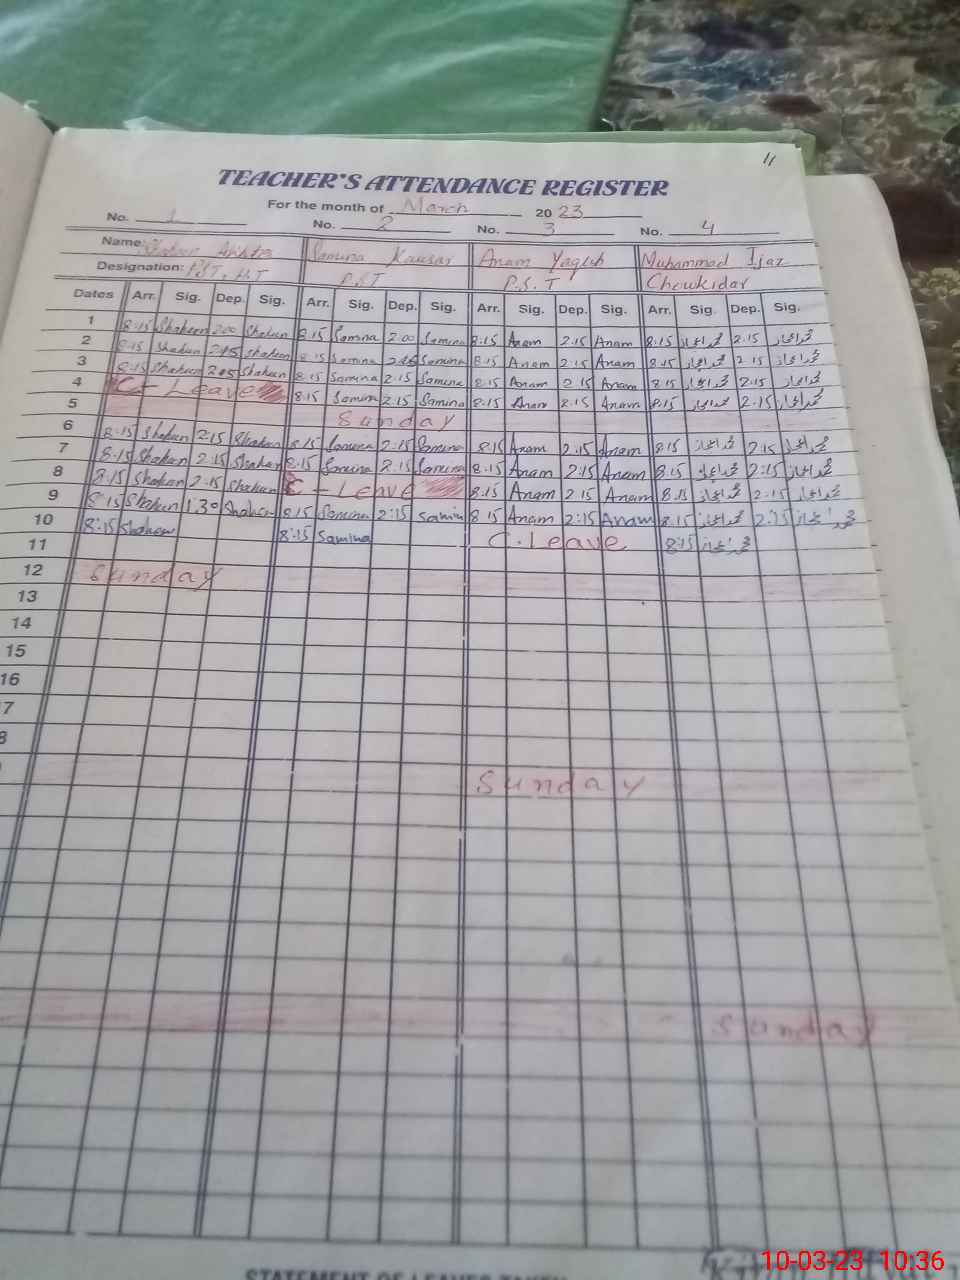 11
TEACHER'S ATTENDANCE REGISTER
For the month of March 2023
No. 1 No. 2 No. 3 No. 4
Name: Shaheen Samina Kausar Anam Yaqub Muhammad Ijaz
Designation: PST, H.T P.S.T P.S.T Chowkidar
Dates Arr. Sig. Dep. Sig. Arr. Sig. Dep. Sig. Arr. Sig. Dep. Sig. Arr. Sig. Dep. Sig.
1 8:15 Shaheen 2:00 Shaheen 8:15 Samina 2:00 Samina 8:15 Anam 2:15 Anam 8:15 محمد اعجاز 2:15 محمد اعجاز
2 8:15 Shaheen 2:15 Shaheen 8:15 Samina 2:15 Samina 8:15 Anam 2:15 Anam 8:15 محمد اعجاز 2:15 محمد اعجاز
3 8:15 Shaheen 2:15 Shaheen 8:15 Samina 2:15 Samina 8:15 Anam 2:15 Anam 8:15 محمد اعجاز 2:15 محمد اعجاز
4 C - Leave 8:15 Samina 2:15 Samina 8:15 Anam 2:15 Anam 8:15 محمد اعجاز 2:15 محمد اعجاز
5 Sunday
6 8:15 Shaheen 2:15 Shaheen 8:15 Samina 2:15 Samina 8:15 Anam 2:15 Anam 8:15 محمد اعجاز 2:15 محمد اعجاز
7 8:15 Shaheen 2:15 Shaheen 8:15 Samina 2:15 Samina 8:15 Anam 2:15 Anam 8:15 محمد اعجاز 2:15 محمد اعجاز
8 8:15 Shaheen 2:15 Shaheen C - Leave 8:15 Anam 2:15 Anam 8:15 محمد اعجاز 2:15 محمد اعجاز
9 8:15 Shaheen 1:30 Shaheen 8:15 Samina 2:15 Samina 8:15 Anam 2:15 Anam 8:15 محمد اعجاز 2:15 محمد اعجاز
10 8:15 Shaheen 8:15 Samina C. Leave 8:15 محمد اعجاز
11
12 Sunday
13
14
15
16
7
8
Sunday
Sunday
STATEMENT OF LEAVES TAKEN
10-03-23 10:36